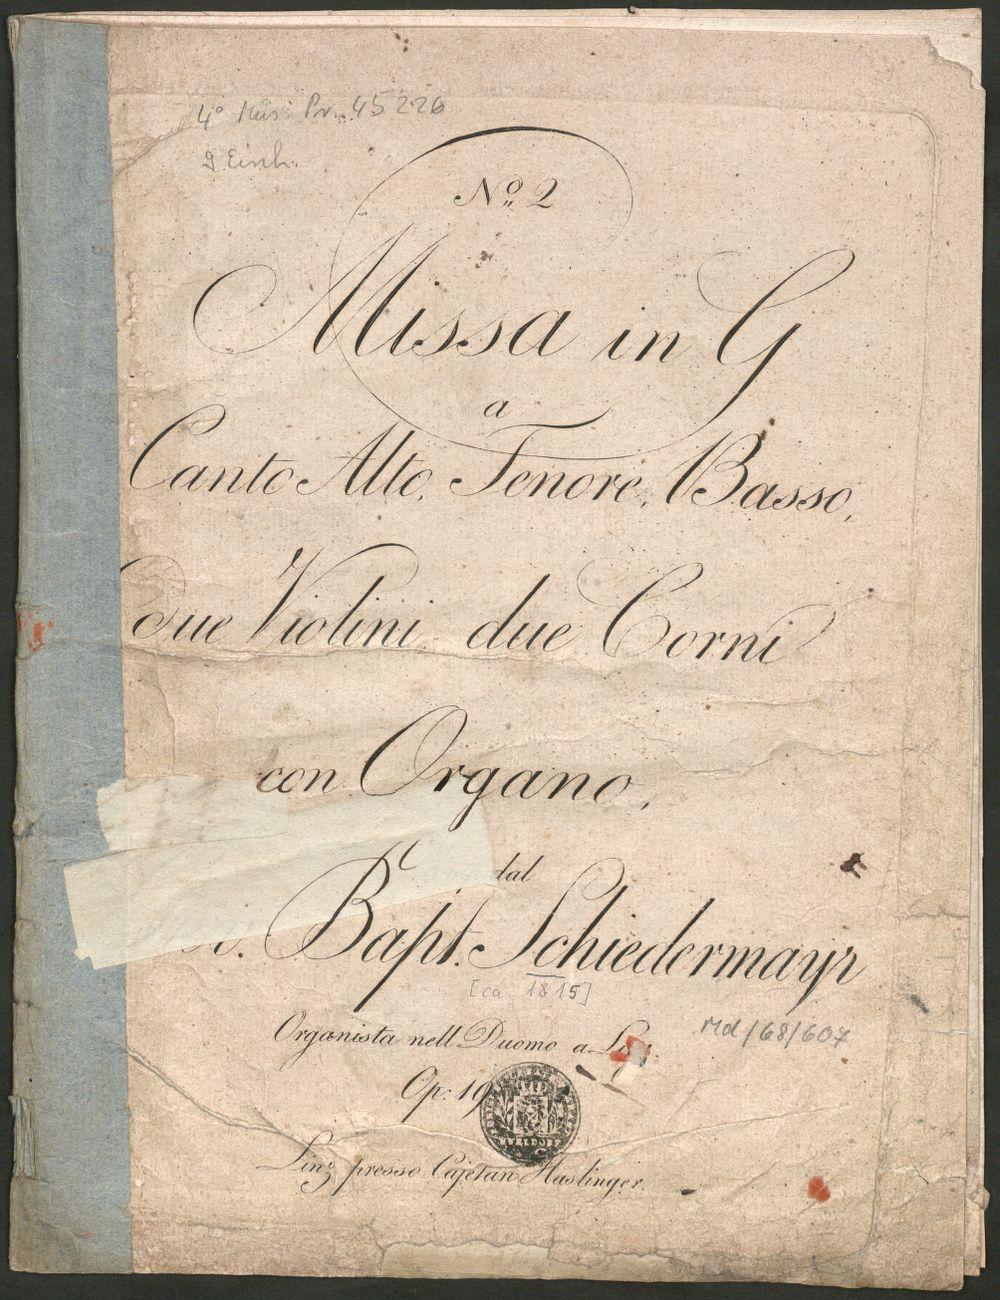 4° Mus. Pr. 45226
9 Einh.
No. 2
Missa in G
a
Canto Alto, Tenore, Basso,
Due Violini, due Corni
con Organo,
dal
Bapt. Schiedermayr
[ca. 1815]
Organista nell Duomo a
Md/68/607
Op: 19
Linz presso Cajetan Haslinger.